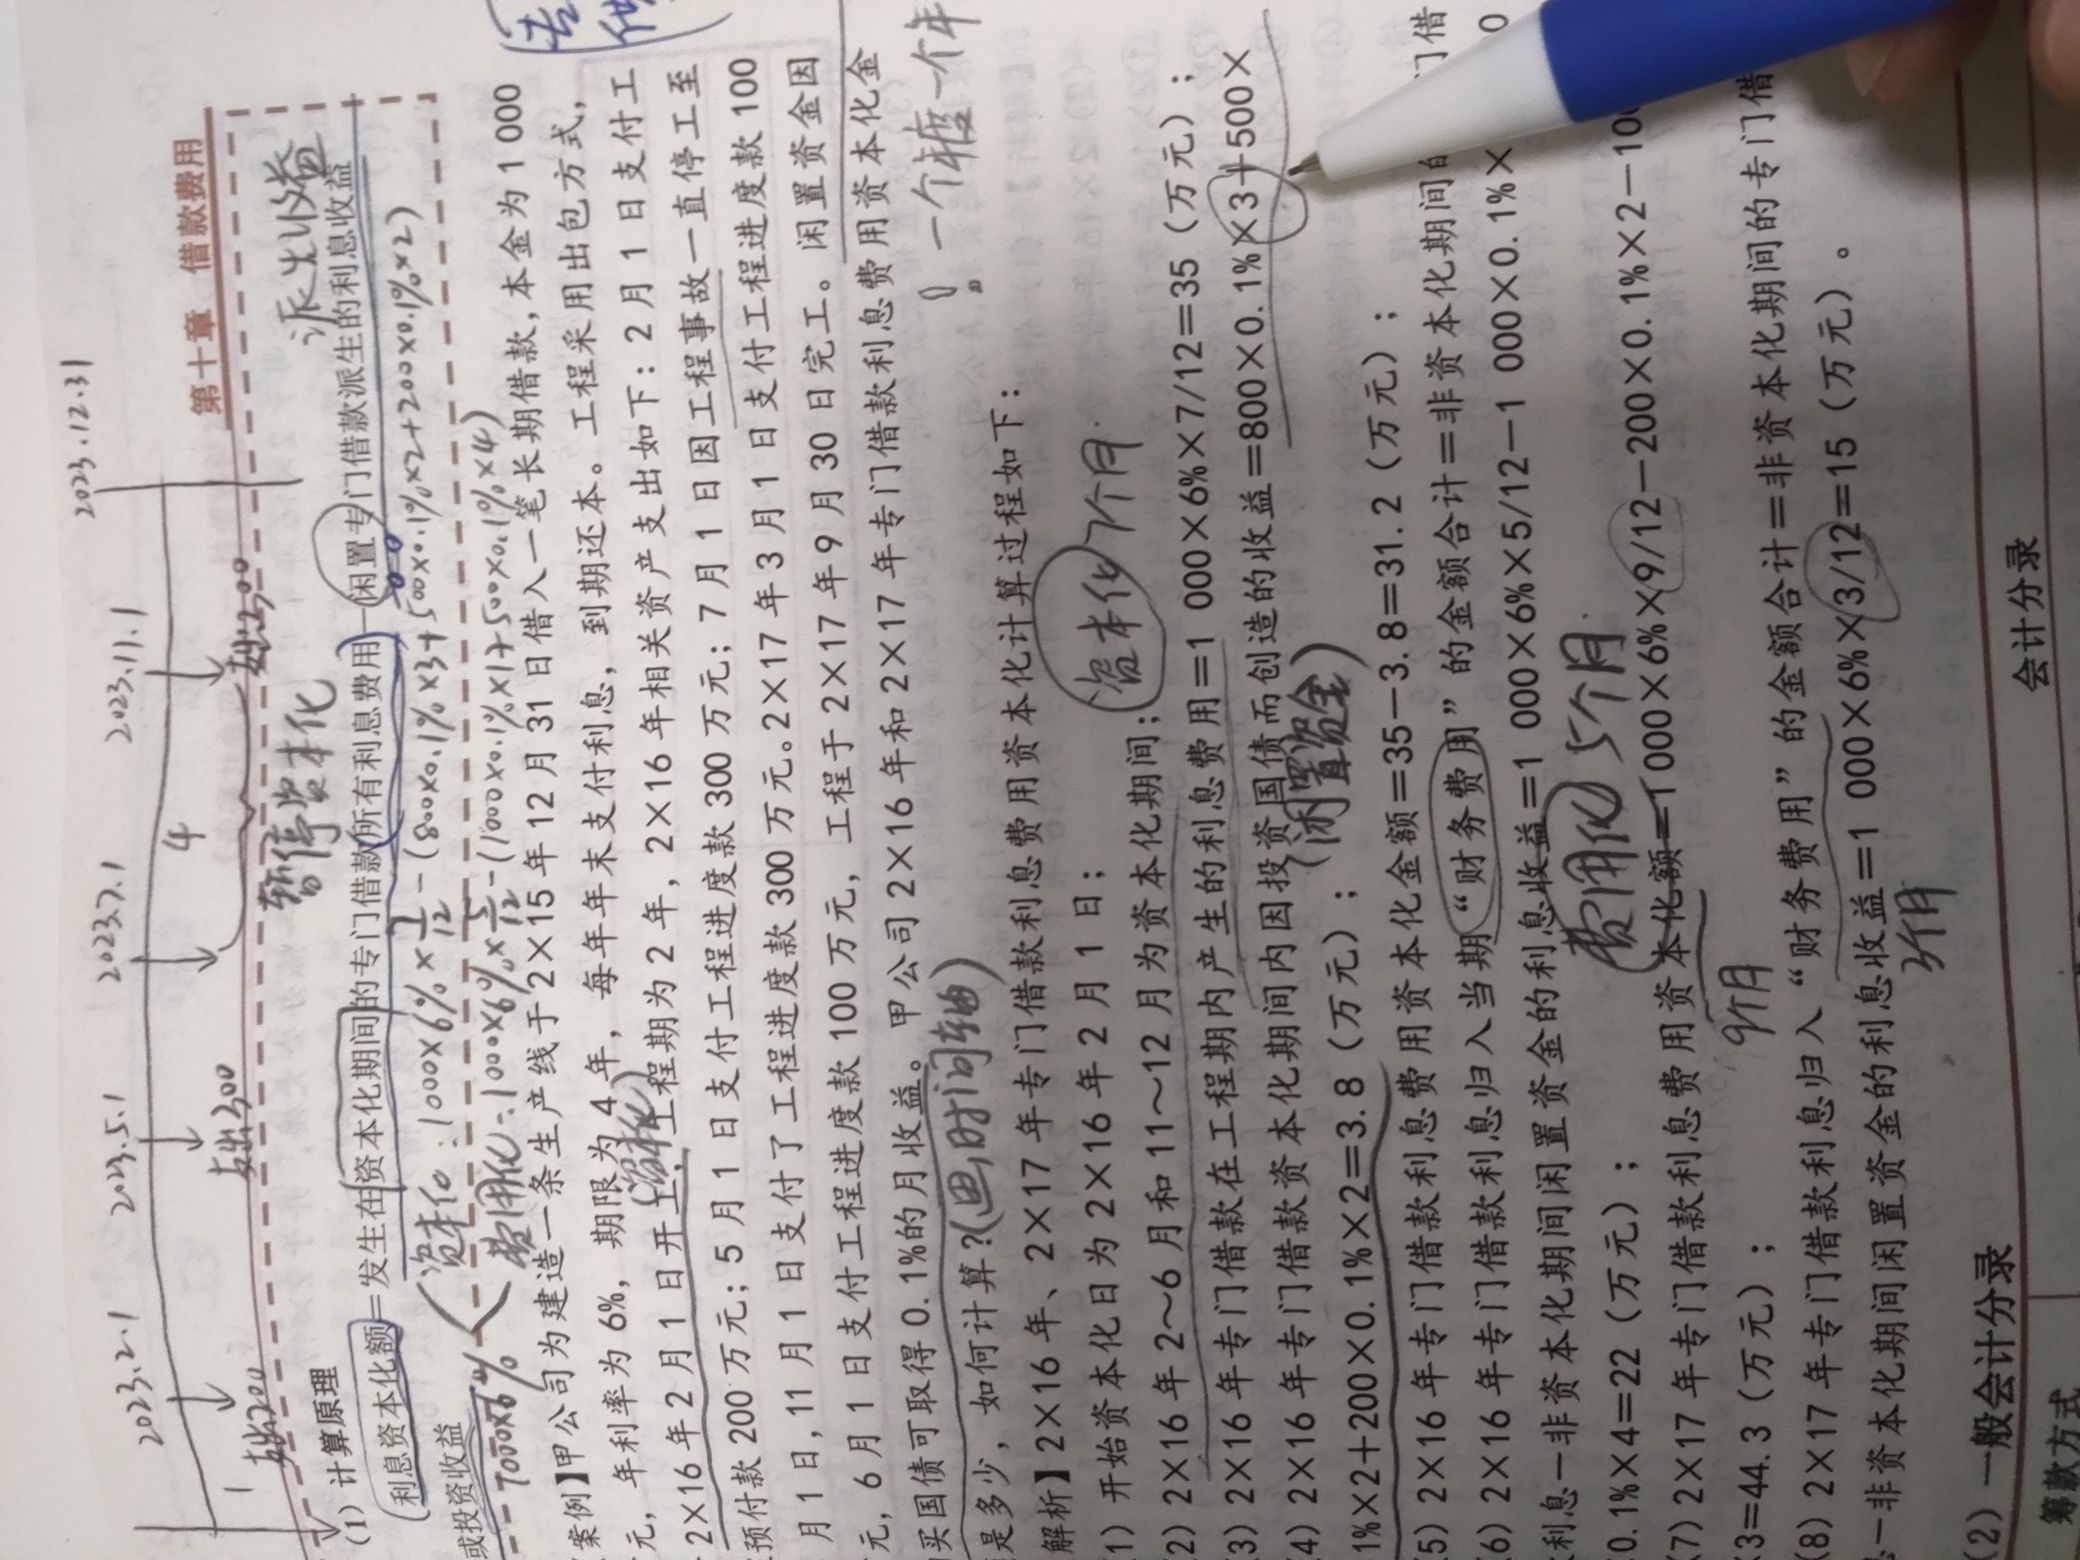 第十章 借款费用
2023.2.1 2023.5.1 2023.7.1 2023.11.1 2023.12.31
1 4
支出200 支出300 暂停资本化 支出300 派生收益
(1) 计算原理
利息资本化额=发生在资本化期间的专门借款所有利息费用-闲置专门借款派生的利息收益
或投资收益
资本化:1000×6%×7/12-(800×0.1%×3+500×0.1%×2+200×0.1%×2)
1000×6%
费用化:1000×6%×5/12-(1000×0.1%×1+500×0.1%×4)
案例】甲公司为建造一条生产线于 2×15 年 12 月 31 日借入一笔长期借款,本金为 1 000
元,年利率为 6%,期限为 4 年,每年年末支付利息,到期还本。工程采用出包方式,
资本化
2×16 年 2 月 1 日开工,工程期为 2 年,2×16 年相关资产支出如下:2 月 1 日支付工
预付款 200 万元;5 月 1 日支付工程进度款 300 万元;7 月 1 日因工程事故一直停工至
月 1 日,11 月 1 日支付了工程进度款 300 万元。2×17 年 3 月 1 日支付工程进度款 100
元,6 月 1 日支付工程进度款 100 万元,工程于 2×17 年 9 月 30 日完工。闲置资金因
买国债可取得 0.1%的月收益。甲公司 2×16 年和 2×17 年专门借款利息费用资本化金
是多少,如何计算?(画时间轴)
一个年一个年
解析】2×16 年、2×17 年专门借款利息费用资本化计算过程如下:
1)开始资本化日为 2×16 年 2 月 1 日;
2)2×16 年 2~6 月和 11~12 月为资本化期间; 资本化 7个月
3)2×16 年专门借款在工程期内产生的利息费用=1 000×6%×7/12=35(万元);
4)2×16 年专门借款资本化期间内因投资国债而创造的收益=800×0.1%×3+500×
(闲置资金)
1%×2+200×0.1%×2=3.8(万元);
5)2×16 年专门借款利息费用资本化金额=35-3.8=31.2(万元);
6)2×16 年专门借款利息归入当期“财务费用”的金额合计=非资本化期间的 门借
利息-非资本化期间闲置资金的利息收益=1 000×6%×5/12-1 000×0.1%× 0
0.1%×4=22(万元); 费用化 5个月
7)2×17 年专门借款利息费用资本化额=1 000×6%×9/12-200×0.1%×2-10
9个月
×3=44.3(万元);
8)2×17 年专门借款利息归入“财务费用”的金额合计=非资本化期间的专门借
-非资本化期间闲置资金的利息收益=1 000×6%×3/12=15(万元)。
3个月
2)一般会计分录
第款方式 会计分录